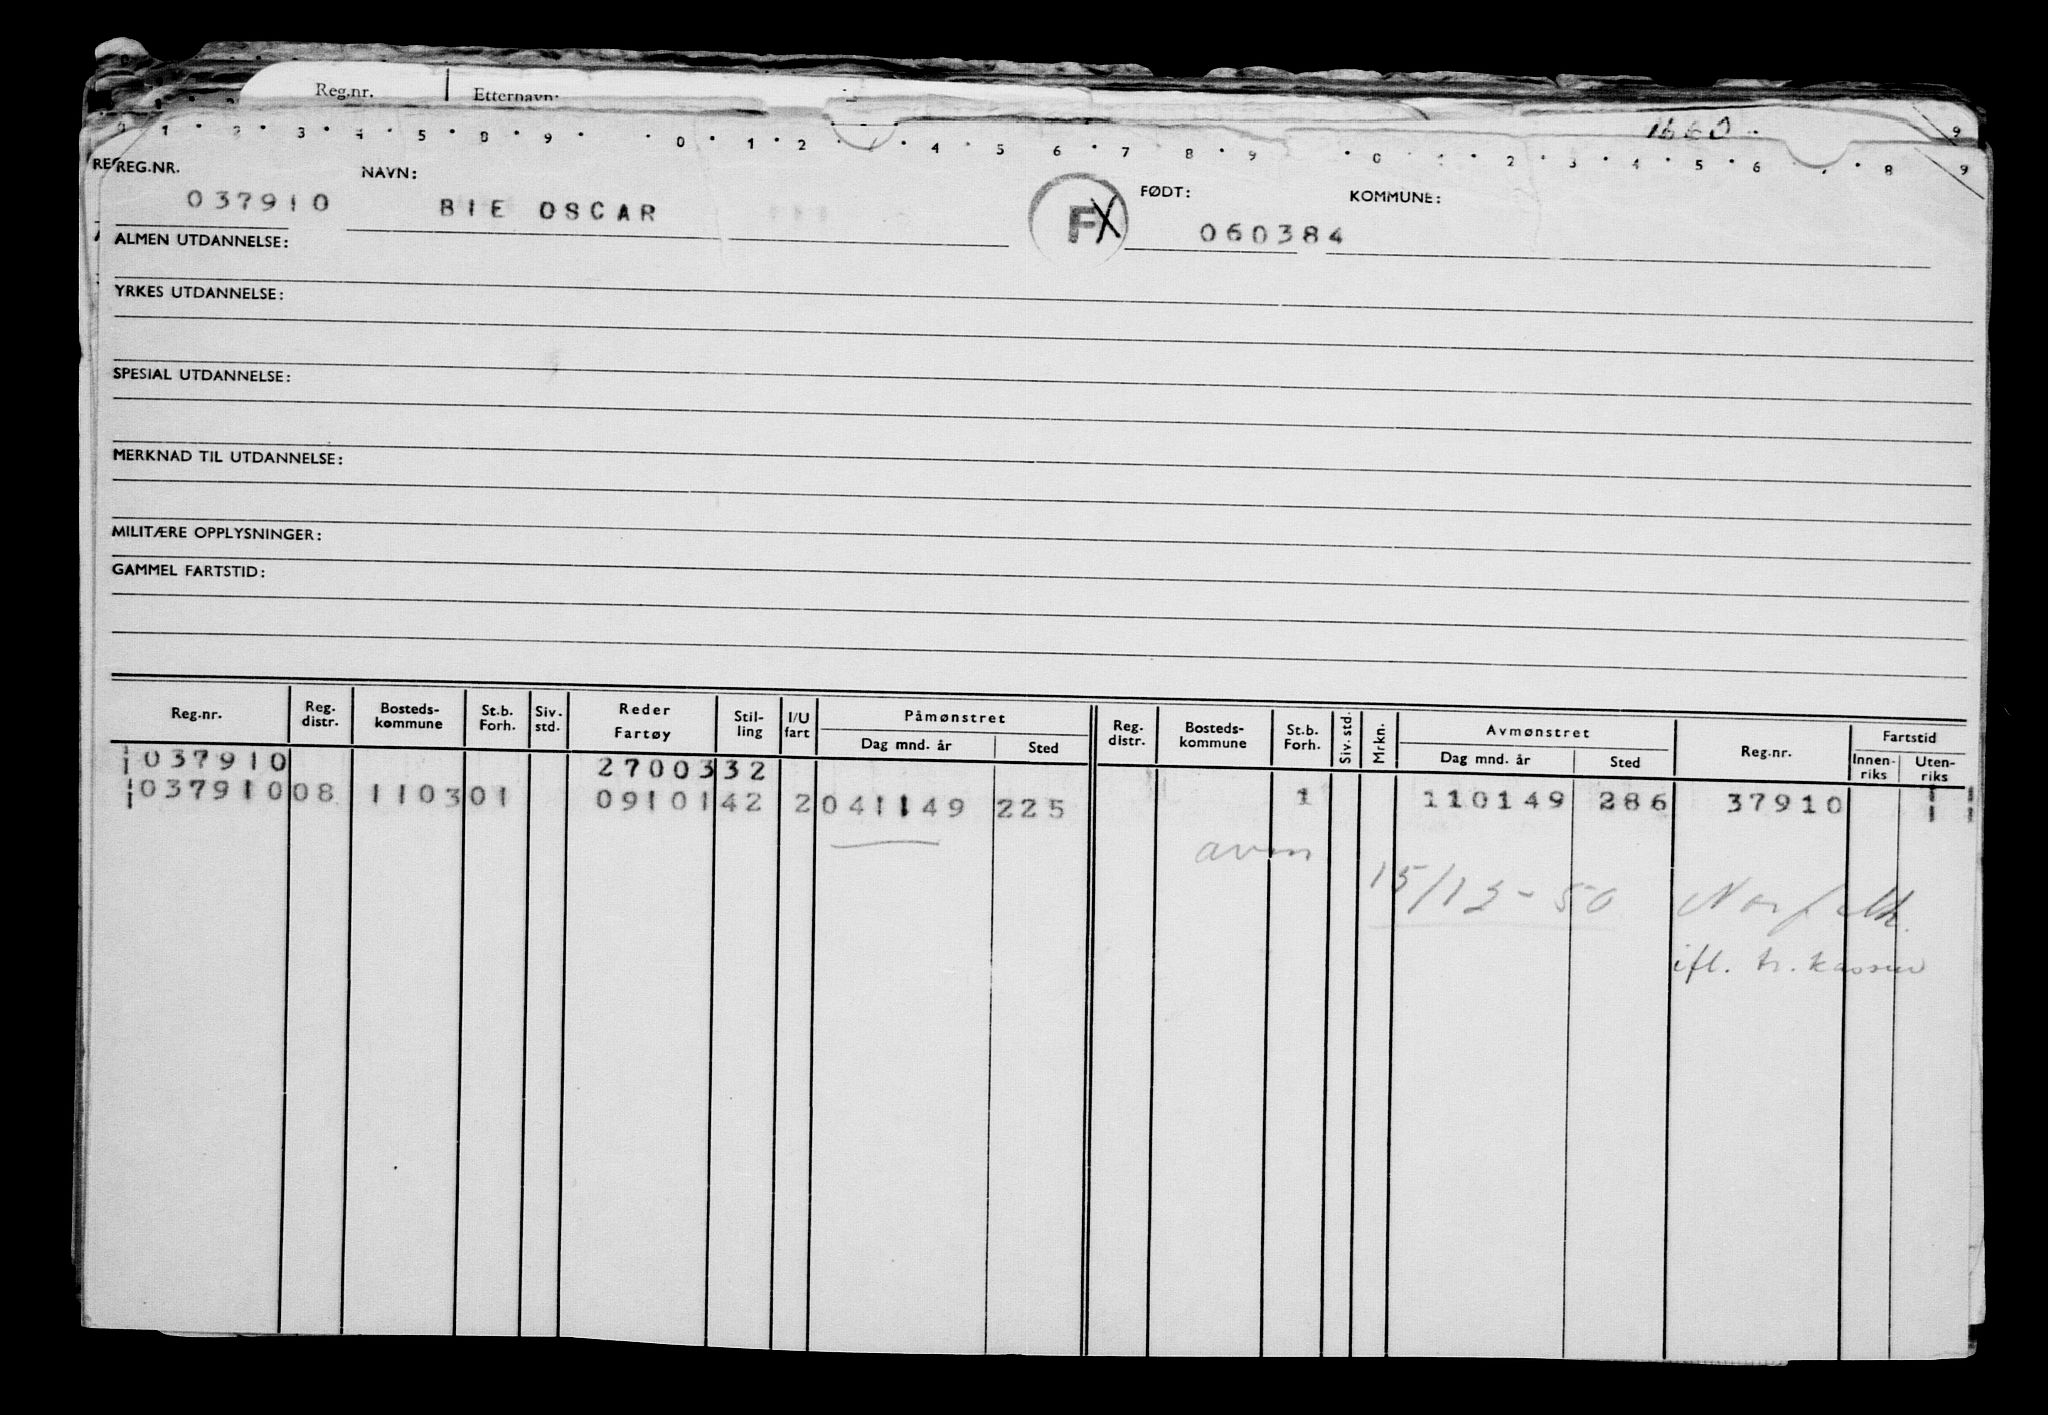 Reg.nr. Etternavn:
1660
9
0 1 2 3 4 5 8 9 0 1 2 4 5 6 7 8 9 0 1 2 3 4 5 6 8 9
RE REG.NR. NAVN: FØDT: KOMMUNE:
037910 BIE OSCAR FX 060384
ALMEN UTDANNELSE:
YRKES UTDANNELSE:
SPESIAL UTDANNELSE:
MERKNAD TIL UTDANNELSE:
MILITÆRE OPPLYSNINGER:
GAMMEL FARTSTID:
Reg.nr. Reg. distr. Bosteds- kommune St.b. Forh. Siv. std. Reder Fartøy Stil- ling I/U fart Påmønstret Dag mnd. år Sted Reg. distr. Bosteds- kommune St.b. Forh. Siv. std. Mrkn. Avmønstret Dag mnd. år Sted Reg.nr. Fartstid Innen- riks Uten- riks
037910 2700332
037910 08 1103 01 0910142 2 041149 225 1 110149 286 37910
avm
15/12-50 Norfolk
ifl. tr. kassen